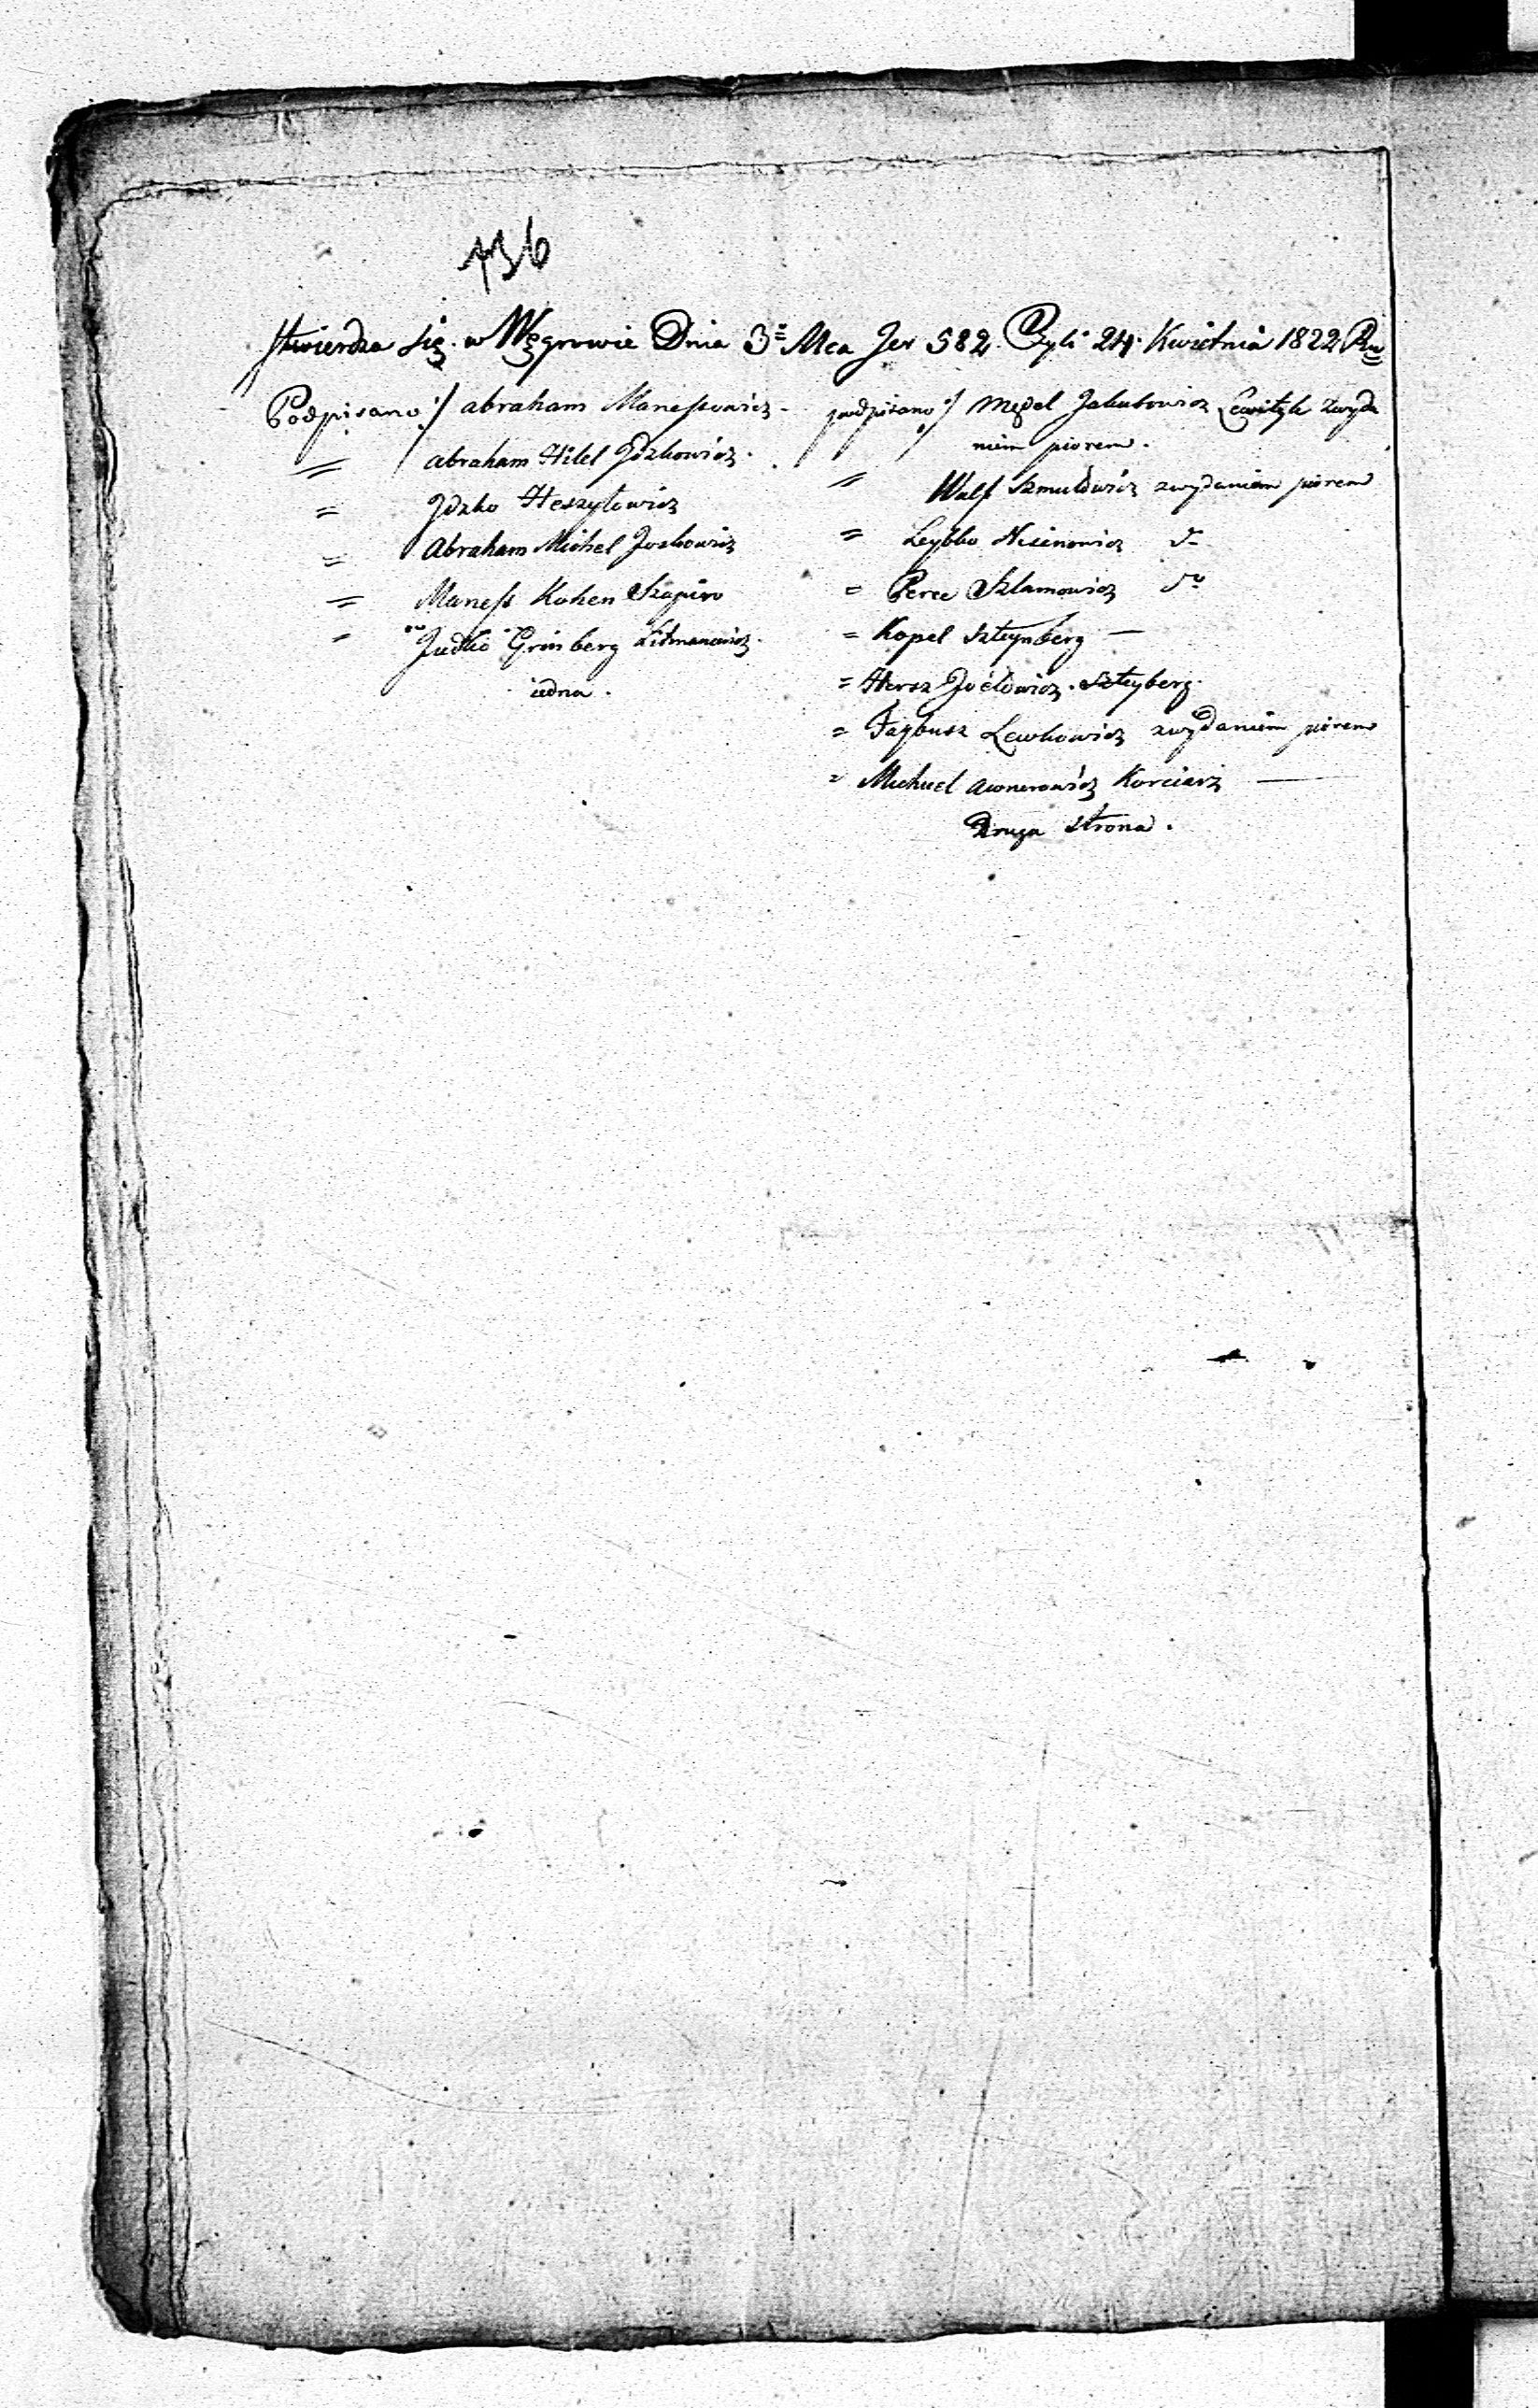 736
stwierdza się. w Węgrowie Dnia 3= Mca Jer 582. Czyli 24. Kwietnia 1822 Ru
Podpisano :/ abraham Manessowicz -
= abraham Hilel Jdzkowicz.
= Jdzko Heszylowicz
= Abraham Michel Joskowicz
= Maness Kohen Szapiro
= Judko Grinberg Litmanowicz.
iedna.
podpisano :/ Męדel Jakubowicz Lewityk zwyda
niem piorem.
= Wulf Szmulowicz zwydaniem piorem
= Leybko Nisinowicz do
= Perec Szlamowicz do
= Kopel Szteynberg —
= Hersz Joelowicz. Szteyberg.
= Faybusz Lewkowicz zwydaniem piorem
= Michuel Awnerowicz Korciarz —
Druga strona.